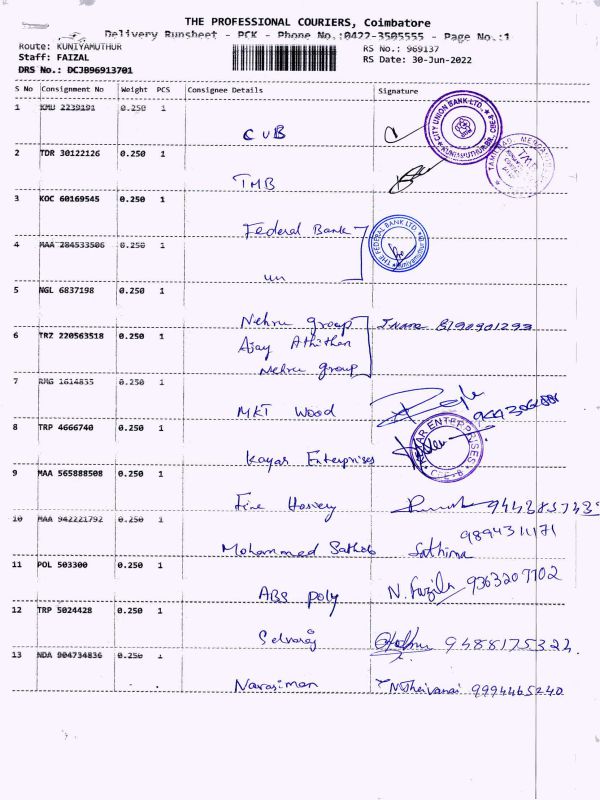 THE PROFESSIONAL COURIERS, Coimbatore
Delivery Runsheet - PCK - Phone No.:0422-3505555 - Page No.:1
Route: KUNIYAMUTHUR
RS No.: 969137
Staff: FAIZAL
RS Date: 30-Jun-2022
DRS No.: DCJB96913701
S No Consignment No Weight PCS Consignee Details Signature
1 KMU 2239191 0.250 1
CUB
CITY UNION BANK LTD.
KUNIYAMUTHUR BR. CBE-8
2 TDR 30122126 0.250 1
TMB
3 KOC 60169545 0.250 1
Federal Bank
THE FEDERAL BANK LTD
Kuniyamuthur
4 MAA 284533506 0.250 1
un
5 NGL 6837198 0.250 1
Nehru group
6 TRZ 220563518 0.250 1
Ajay Athithan
Nehru group
7 RMG 1614835 0.250 1
MKT Wood
8 TRP 4666740 0.250 1
Kayar Enterprises
KAYAR ENTERPRISES
CBE-8
9 MAA 565888508 0.250 1
Fire Harvey
10 MAA 942221792 0.250 1
Mohammed Sathab Sathima 9894311171
11 POL 503300 0.250 1
ABS poly N. Fazila 9363207702
12 TRP 5024428 0.250 1
Selvaraj 9488175322.
13 NDA 904734836 0.250 1
Narasiman 9994465240